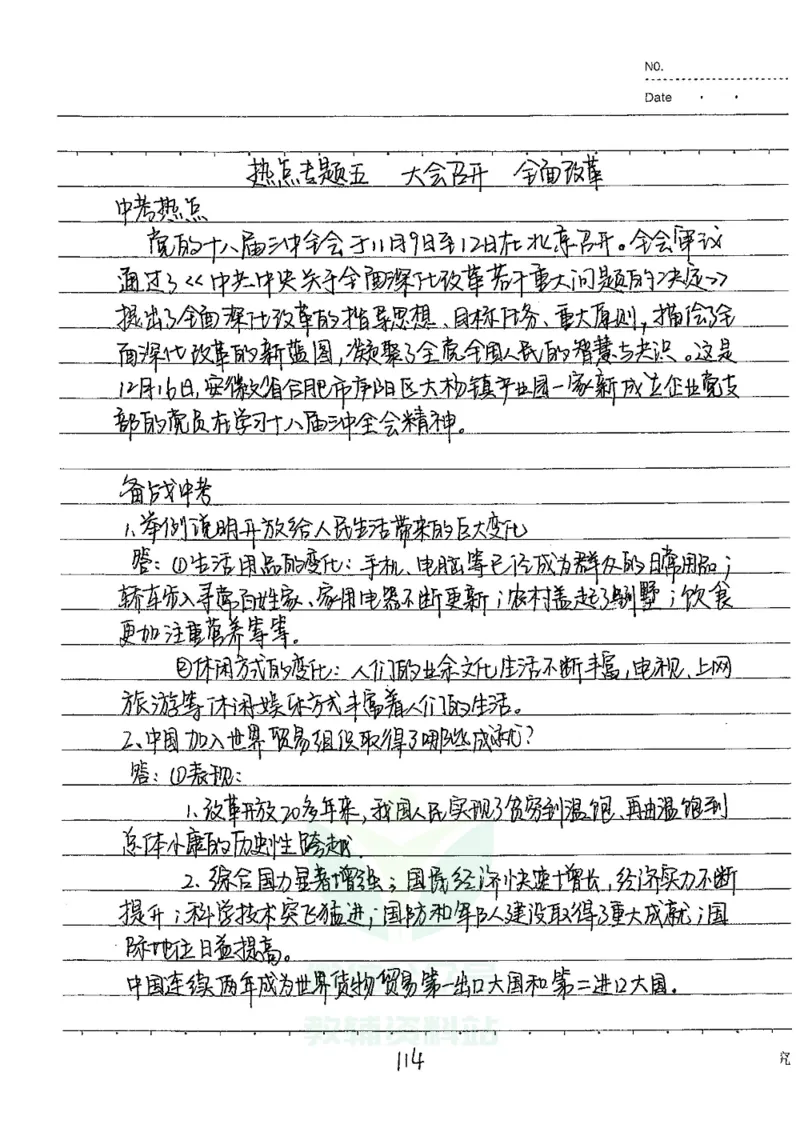 NO.
Date
热点专题五 大会召开 全面改革
中考热点
党的十八届三中全会于11月9日至12日在北京召开。全会审议
通过了《中共中央关于全面深化改革若干重大问题的决定》
提出了全面深化改革的指导思想、目标任务、重大原则，描绘了全
面深化改革的新蓝图，凝聚了全党全国人民的智慧与共识。这是
12月16日，安徽省合肥市庐阳区大杨镇产业园一家新成立企业党支
部的党员在学习十八届三中全会精神。
备战中考
1、举例说明开放给人民生活带来的巨大变化
答：①生活用品的变化：手机、电脑等已经成为群众的日常用品；
轿车步入寻常百姓家、家用电器不断更新；农村盖起了别墅；饮食
更加注重营养等等。
②休闲方式的变化：人们的业余文化生活不断丰富，电视、上网
旅游等休闲娱乐方式丰富着人们的生活。
2、中国加入世界贸易组织取得了哪些成就？
答：①表现：
1、改革开放20多年来，我国人民实现了贫穷到温饱、再由温饱到
总体小康的历史性跨越.
2、综合国力显著增强；国民经济快速增长，经济实力不断
提升；科学技术突飞猛进；国防和军队建设取得了重大成就；国
际地位日益提高。
中国连续两年成为世界货物贸易第一出口大国和第二进口大国。
教辅资料站
114
究